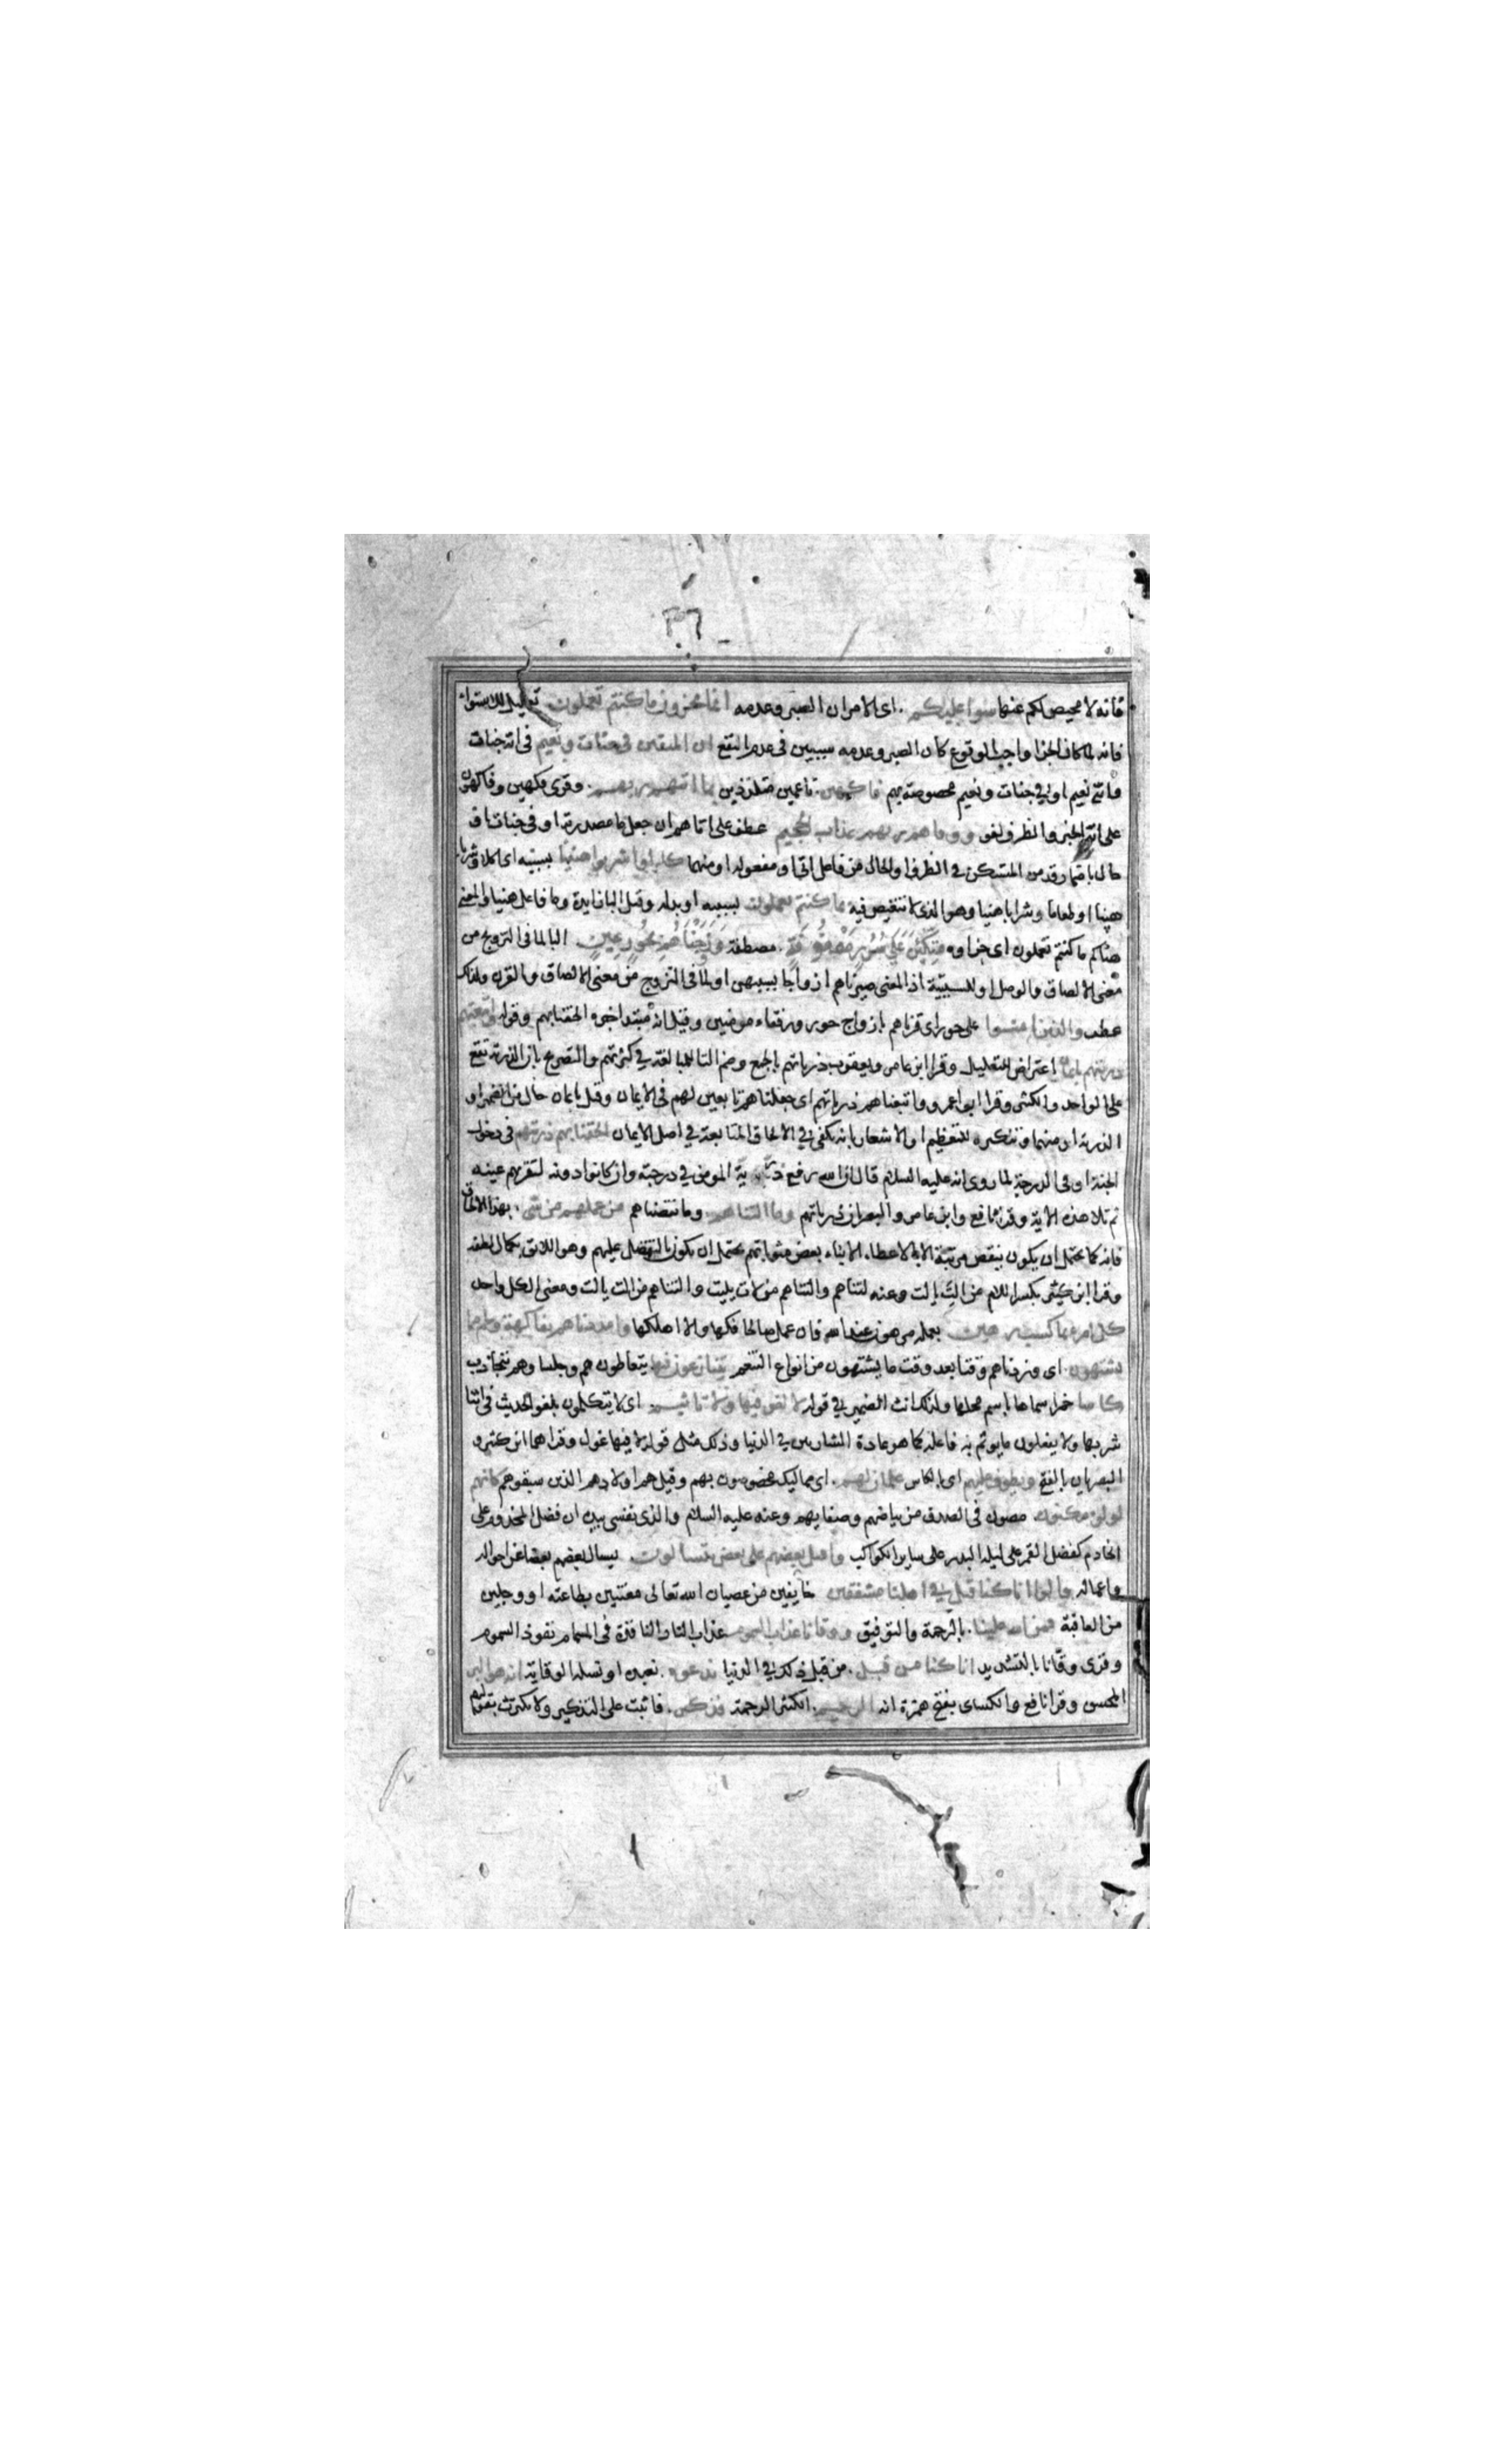 ٣٦
فانه لا محيص لكم عنها سوا عليكم . اى الامران الصبر وعدمه انما تجزون ما كنتم تعملون تعليل للاستواء
فانه لما كان الجزا واجب الوقوع كان الصبر وعدمه سببين فى عدم النفع ان المتقين فى جنات ونعيم فى اية جنات
واى نعيم او فى جنات ونعيم مخصوصة بهم فاكهين . ناعمين متلذذين بما اتيهم ربهم . وقرى فكهين وفاكهون
على انه الخبر والظرف لغو ووقاهم ربهم عذاب الجحيم عطف على اتاهم ان جعل ما مصدرية او فى جنات او
حال باضمار قد من المستكن فى الظرف او الحال من فاعل اتى او مفعوله او منهما كلوا واشربوا هنيئا بسببه اى اكلا وشربا
هنيئا او طعاما وشرابا هنيا وهو الذى لا تنقيص فيه بما كنتم تعملون بسببه او بدله وقيل البا زايدة وما فاعل هنيا والمعنى
هناكم ما كنتم تعملون اى جزاوه متكئين على سرر مصفوفة . مصطفة وزوجناهم بحور عين . البا لما فى التزويج من
معنى الالصاق والوصل او للسببية اذ المعنى صيرناهم ازواجا بسببهن او لما فى التزويج من معنى الالصاق والقرن ولذلك
عطف والذين امنوا على حور اى قرناهم بازواج حور ورفقاء مومنين وقيل انه مبتدا خبره الحقنا بهم وقوله واتبعتهم
ذريتهم بايمان اعتراض للتعليل وقرا ابن عامر ويعقوب ذرياتهم بالجمع وضم التا للمبالغة فى كثرتهم والتصريح بان الذرية تقع
على الواحد والكثير وقرا ابو عمرو واتبعناهم ذرياتهم اى جعلناهم تابعين لهم فى الايمان وقيل بايمان حال من الضمير او
الذرية او منهما وتنكيره للتعظيم او الاشعار بانه يكفى فى الالحاق المتابعة فى اصل الايمان الحقنا بهم ذريتهم فى دخول
الجنة او فى الدرجة لما روى انه عليه السلام قال ان الله يرفع ذرية المومن فى درجته وان كانوا دونه لتقر بهم عينه
ثم تلا هذه الاية وقرا نافع وابن عامر والبصريان ذرياتهم وما التناهم . وما نقصناهم من عملهم من شى . بهذا الالحاق
فانه كما يحتمل ان يكون بنقص مرتبة الابا لاعطاء الابناء بعض مثوباتهم يحتمل ان يكون بالتفضل عليهم وهو اللائق بكمال لطفه
وقرا ابن كثير بكسر اللام من الت يالت وعنه لتناهم والتناهم من لات يليت والتناهم من الت يالت ومعنى الكل واحد
كل امرء بما كسب رهين بعمله مرهون عند الله فان عمل صالحا فكها والا اهلكها وامددناهم بفاكهة ولحم مما
يشتهون . اى وزدناهم وقتا بعد وقت ما يشتهون من انواع التنعم يتنازعون فيها يتعاطون هم وجلساوهم بتجاذب
كاسا خمرا سماها باسم محلها ولذلك انث الضمير فى قوله لا لغو فيها ولا تاثيم . اى لا يتكلمون بلغو الحديث فى اثنا
شربها ولا يفعلون ما يوثم به فاعله كما هو عادة الشاربين فى الدنيا وذلك مثل قوله لا فيها غول وقراهما ابن كثير و
البصريان بالفتح ويطوف عليهم اى بالكاس غلمان لهم . اى مماليك مخصوصون بهم وقيل هم اولادهم الذين سبقوهم كانهم
لولو مكنون . مصون فى الصدف من بياضهم وصفايهم وعنه عليه السلام والذى نفسى بيده ان فضل المخدوم على
الخادم كفضل القمر على ليلة البدر على ساير الكواكب واقبل بعضهم على بعض يتسالون . يسال بعضهم بعضا عن احواله
واعماله قالوا انا كنا قبل فى اهلنا مشفقين خايفين من عصيان الله تعالى معتنين بطاعته او وجلين
من العاقبة فمن الله علينا . بالرحمة والتوفيق ووقانا عذاب السموم عذاب النار النافذة فى المسام نفوذ السموم
وقرى وقانا بالتشديد انا كنا من قبل . من قبل ذلك فى الدنيا ندعوه . نعبده او نسله الوقاية انه هو البر
المحسن وقرا نافع والكساى بفتح همزة انه الرحيم . الكثير الرحمة فذكر . فاثبت على التذكير ولا تكترث بقولهم